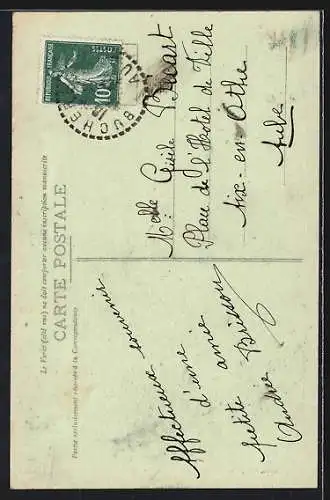 Le Verso (côté vue) ne doit comporter aucune inscription manuscrite
CARTE POSTALE
Partie exclusivement réservée à la Correspondance
RÉPUBLIQUE FRANÇAISE
POSTES
10c
BUCHE
AU
Affectueux souvenir
d'une amie
petite Brisson
Andrée
Mlle Gisèle Bécart
Place de l'Hôtel de Ville
Aix-en-Othe
Aube